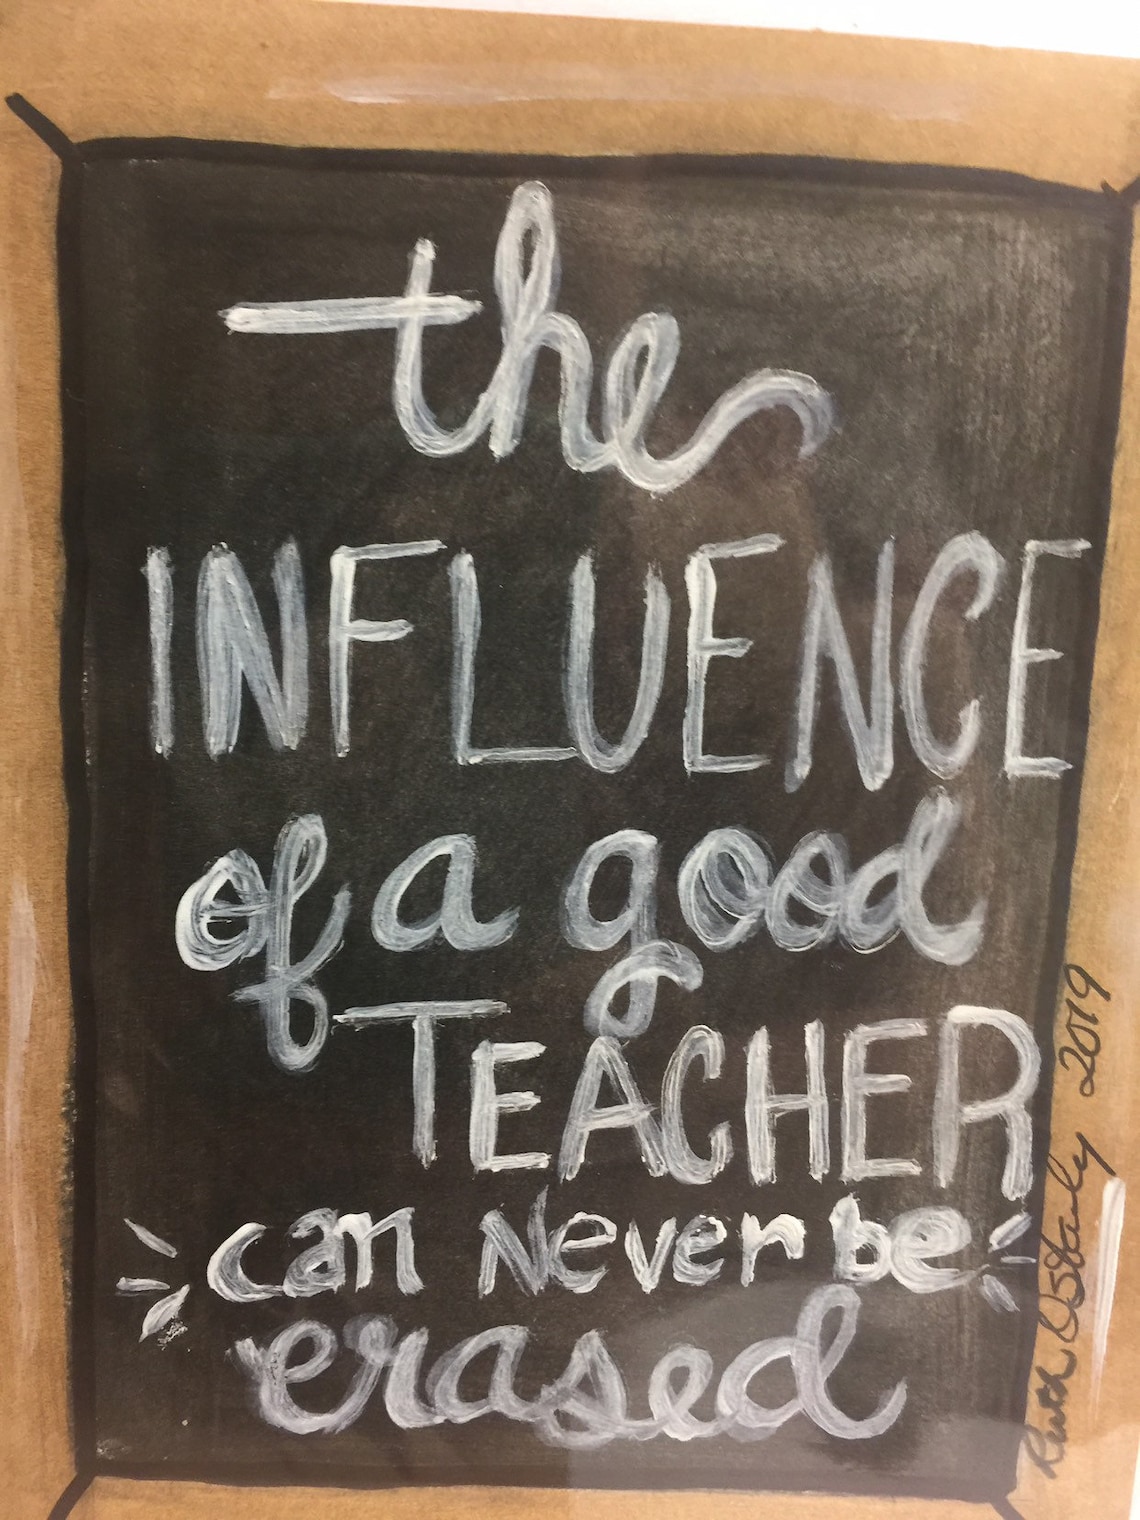 the
INFLUENCE
of a good
TEACHER
can Never be
erased
Ruth 2019